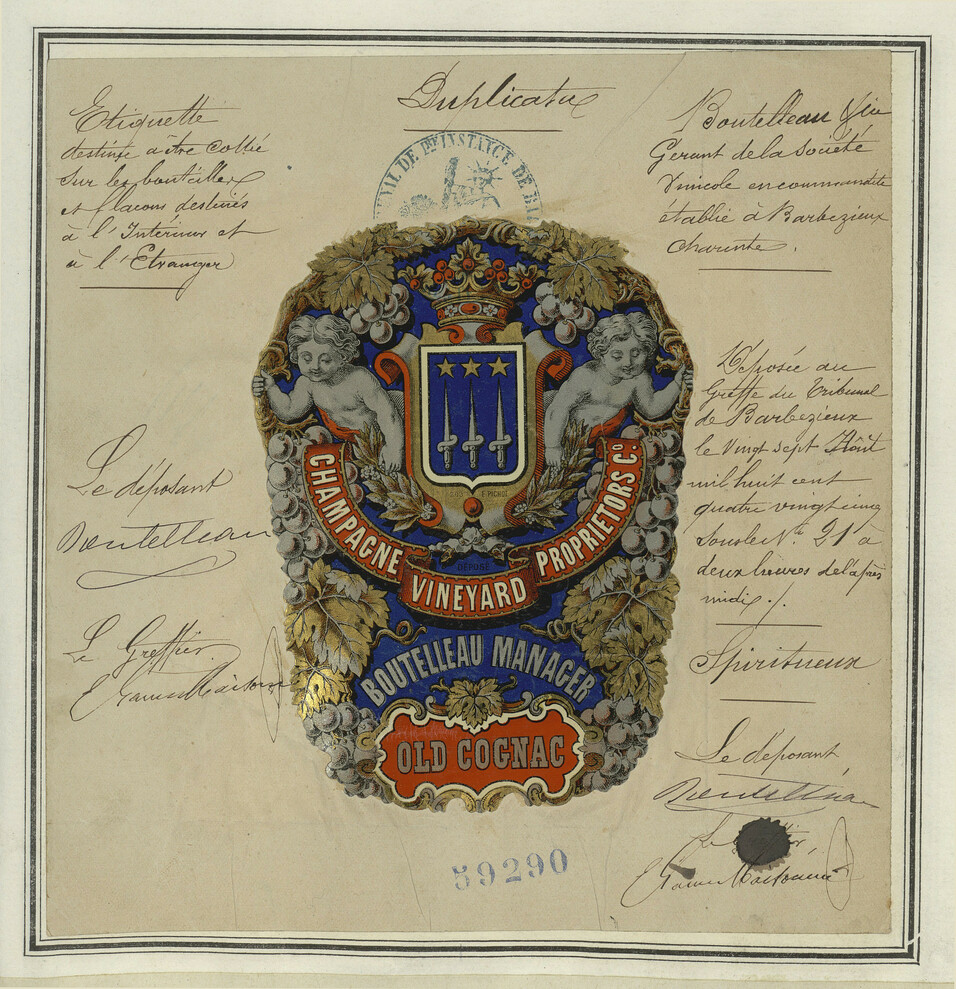 Duplicata
Etiquette
destinée à être collée
sur les bouteilles
et flacons destinés
à l'Intérieur et
à l'Etranger
Le déposant
Boutelleau
Le Greffier
TRIBUNAL DE Pre INSTANCE DE BA
CHAMPAGNE
VINEYARD
PROPRIETORS Co
DÉPOSÉ
BOUTELLEAU MANAGER
OLD COGNAC
59290
Boutelleau
Gerant de la Société
Vinicole en commandite
établie à Barbezieux
Charente.
Déposée au
Greffe du Tribunal
de Barbezieux
le Vingt sept Août
mil huit cent
quatre vingt cinq
sous le No 21 à
deux heures de l'après
midi ./.
Spiritueux
Le déposant
Boutelleau